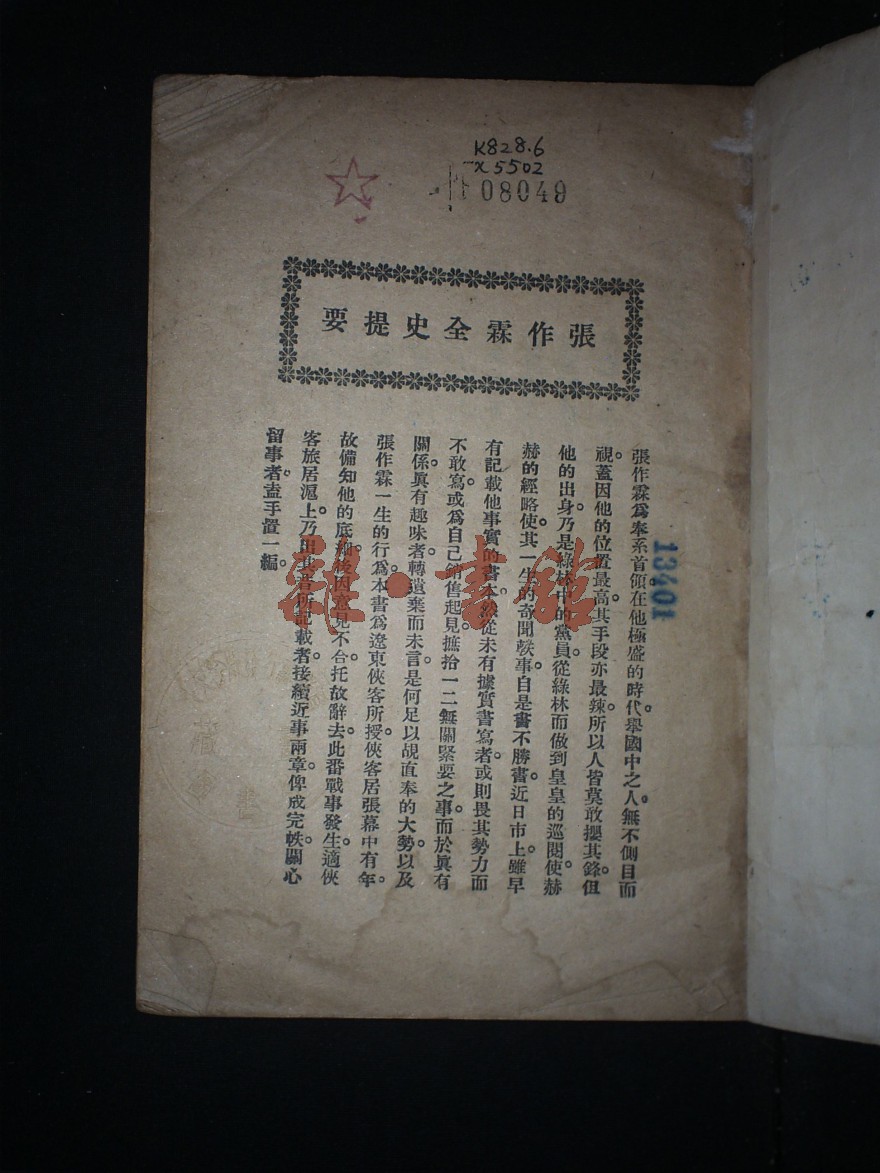 K828.6
x5502
08049
張作霖全史提要
張作霖爲奉系首領在他極盛的時代。舉國中之人。無不側目而
視。蓋因他的位置最高。其手段亦最辣。所以人皆莫敢攖其鋒。但
他的出身。乃是綠林中的黨員。從綠林而做到皇皇的巡閱使。赫
赫的經略使。其一生的奇聞軼事。自是書不勝書。近日市上。雖早
有記載他事實的書本。然從未有據實書寫者。或則畏其勢力而
不敢寫。或爲自己銷售起見。摭拾一二無關緊要之事。而於眞有
關係。眞有趣味者。轉遺棄而未言。是何足以覘直奉的大勢。以及
張作霖一生的行爲。本書爲遼東俠客所授。俠客居張幕中有年。
故備知他的底細。後因意見不合。托故辭去。此番戰事發生。適俠
客旅居滬上。乃出其昔所記載者。接續近事兩章。俾成完帙。關心
留事者。盍手置一編。
13401
雜·書館
藏書